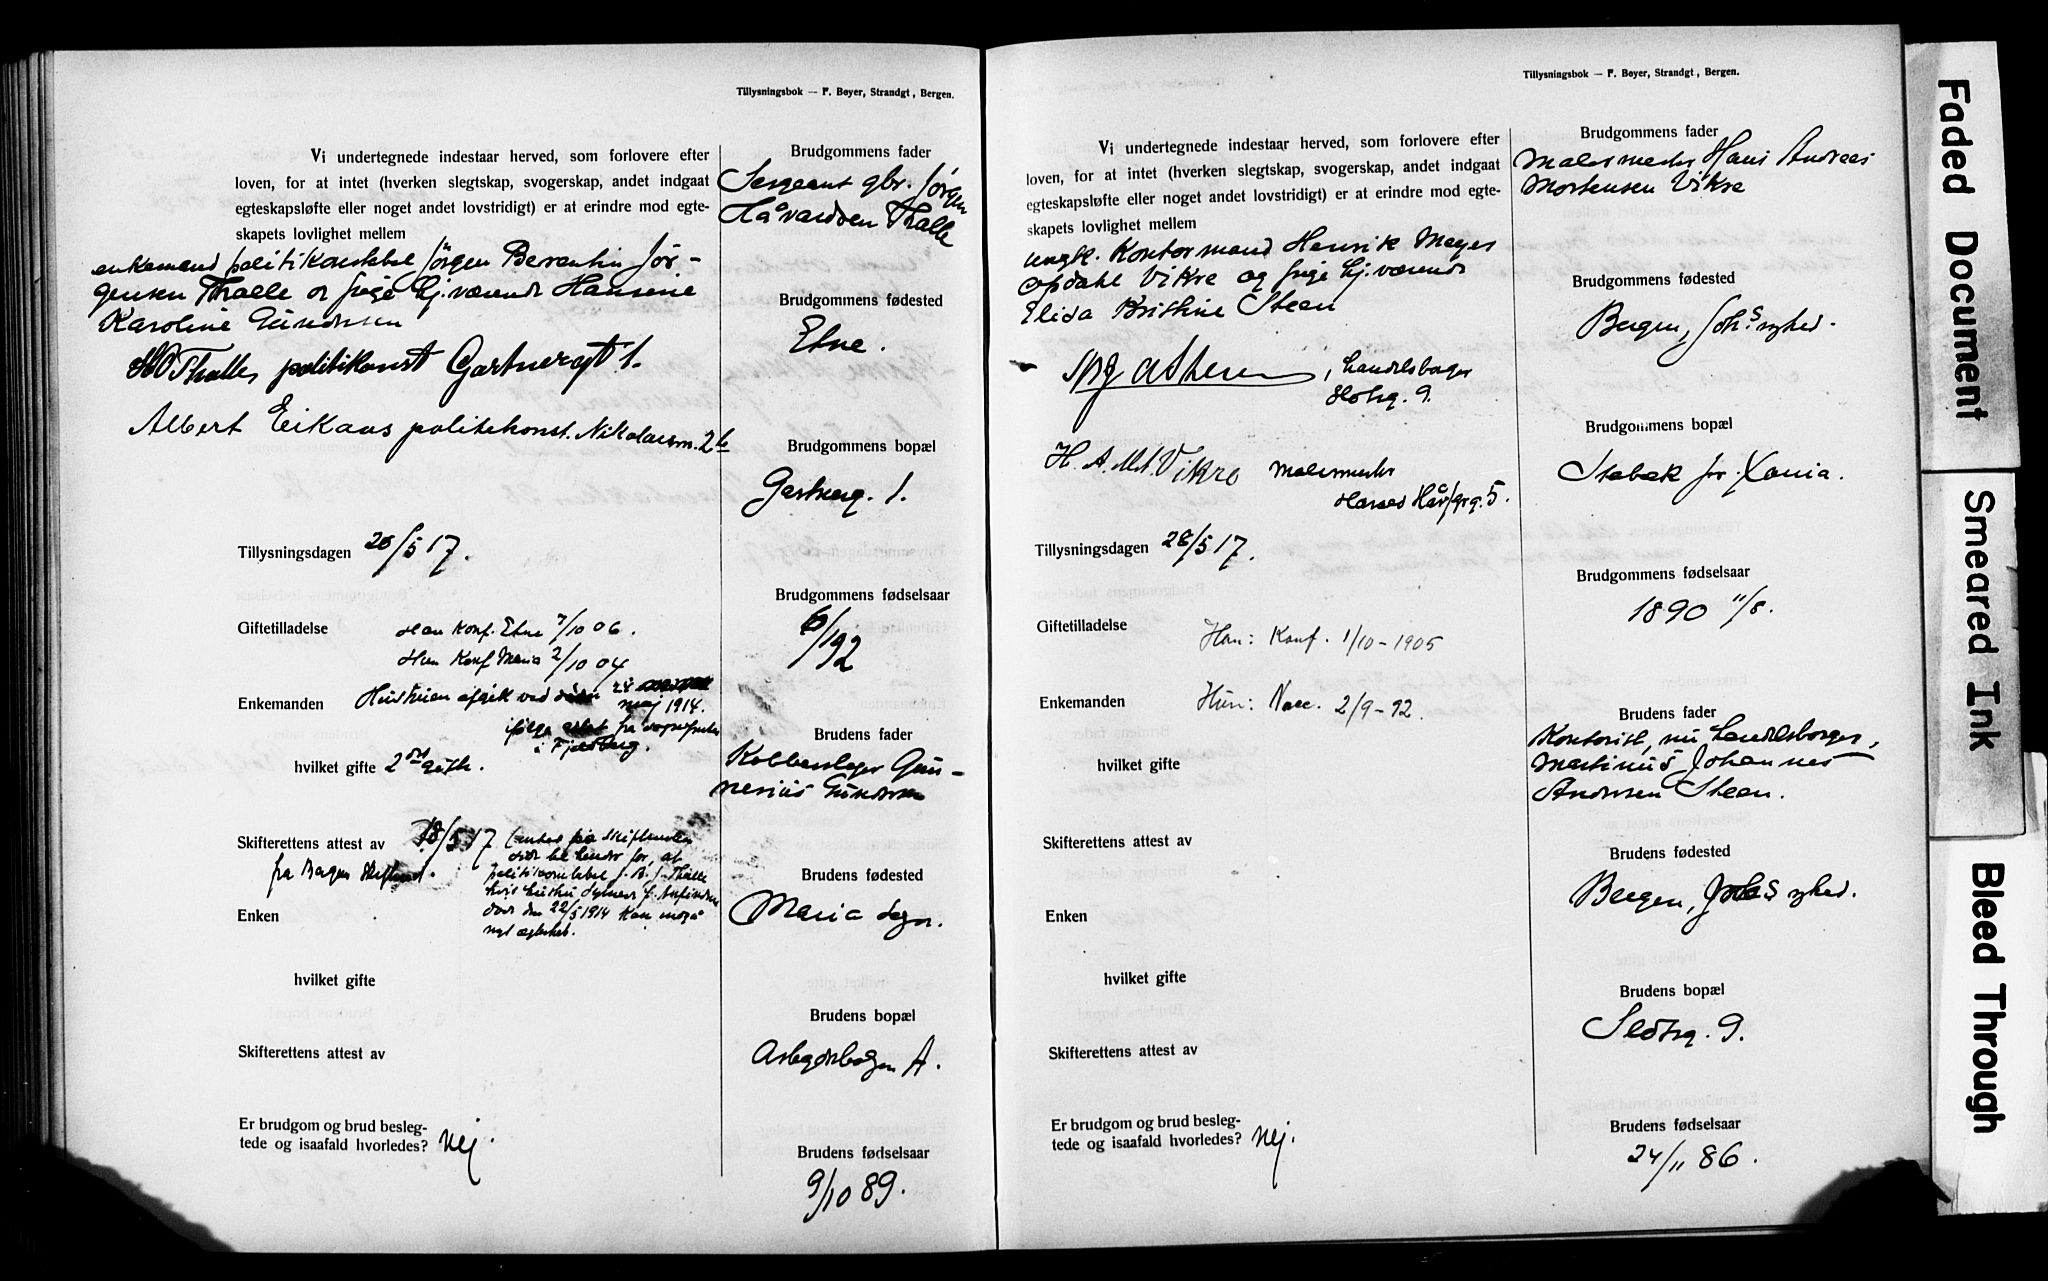 Tillysningsbok — F. Bøyer, Strandgt, Bergen.
Vi undertegnede indestaar herved, som forlovere efter
loven, for at intet (hverken slegtskap, svogerskap, andet indgaat
egteskapsløfte eller noget andet lovstridigt) er at erindre mod egte-
skapets lovlighet mellem
enkemand politikonstabel Jörgen Berentin Jör-
gensen Thalle og pige hj. værende Hansine
Karoline Gundersen
Thalle politikonst Gartnergt 1.
Albert Eikaas politikonst. Nikolaism. 2b
Tillysningsdagen 28/5 17.
Giftetilladelse
Han Konf. Etne 7/10 06.
Hun Konf Maria 2/10 04
Enkemanden Hustruen afgik ved døden 22
maj 1914.
ifølge attest fra sognepresten
i Fjelberg.
hvilket gifte 2det gifte.
Skifterettens attest av 18/5 17
fra Bergen Skifteret.
politikonstabel J. B. J. Thalle
død den 22/5 1914 kan indgå
nyt ægteskab.
Enken
hvilket gifte
Skifterettens attest av
Er brudgom og brud besleg-
tede og isaafald hvorledes? Nej.
Brudgommens fader
Sergeant gbr. Jörgen
Håvardsen Thalle
Brudgommens fødested
Etne.
Brudgommens bopæl
Gartnerg. 1.
Brudgommens fødselsaar
6/1 92
Brudens fader
Kobberslager Gun-
nerius Gundersen
Brudens fødested
Maria sogn.
Brudens bopæl
Arbeiderboligen A.
Brudens fødselsaar
9/10 89.
Tillysningsbok — F. Bøyer, Strandgt, Bergen.
Vi undertegnede indestaar herved, som forlovere efter
loven, for at intet (hverken slegtskap, svogerskap, andet indgaat
egteskapsløfte eller noget andet lovstridigt) er at erindre mod egte-
skapets lovlighet mellem
ungk. Kontormand Henrik Meyer
Opdahl Vikre og pige hj. værende
Elida Kristine Steen
Steen, handelsborger
9.
H. A. M. Vikre malermester
5.
Tillysningsdagen 28/5 17.
Giftetilladelse
Han: Konf. 1/10 - 1905
Enkemanden
Hun: Vacc. 2/9 - 92
hvilket gifte
Skifterettens attest av
Enken
hvilket gifte
Skifterettens attest av
Er brudgom og brud besleg-
tede og isaafald hvorledes? Nej.
Brudgommens fader
Malermester Hans Andreas
Mortensen Vikre
Brudgommens fødested
Bergen, Johs nyhed.
Brudgommens bopæl
Stabæk pr. Xania.
Brudgommens fødselsaar
1890 11/8.
Brudens fader
Kontorist, nu handelsborger,
Martinus Johannes
Andersen Steen.
Brudens fødested
Bergen, Johs nyhed.
Brudens bopæl
9.
Brudens fødselsaar
24/11 86.
Faded Document
Smeared Ink
Bleed Through